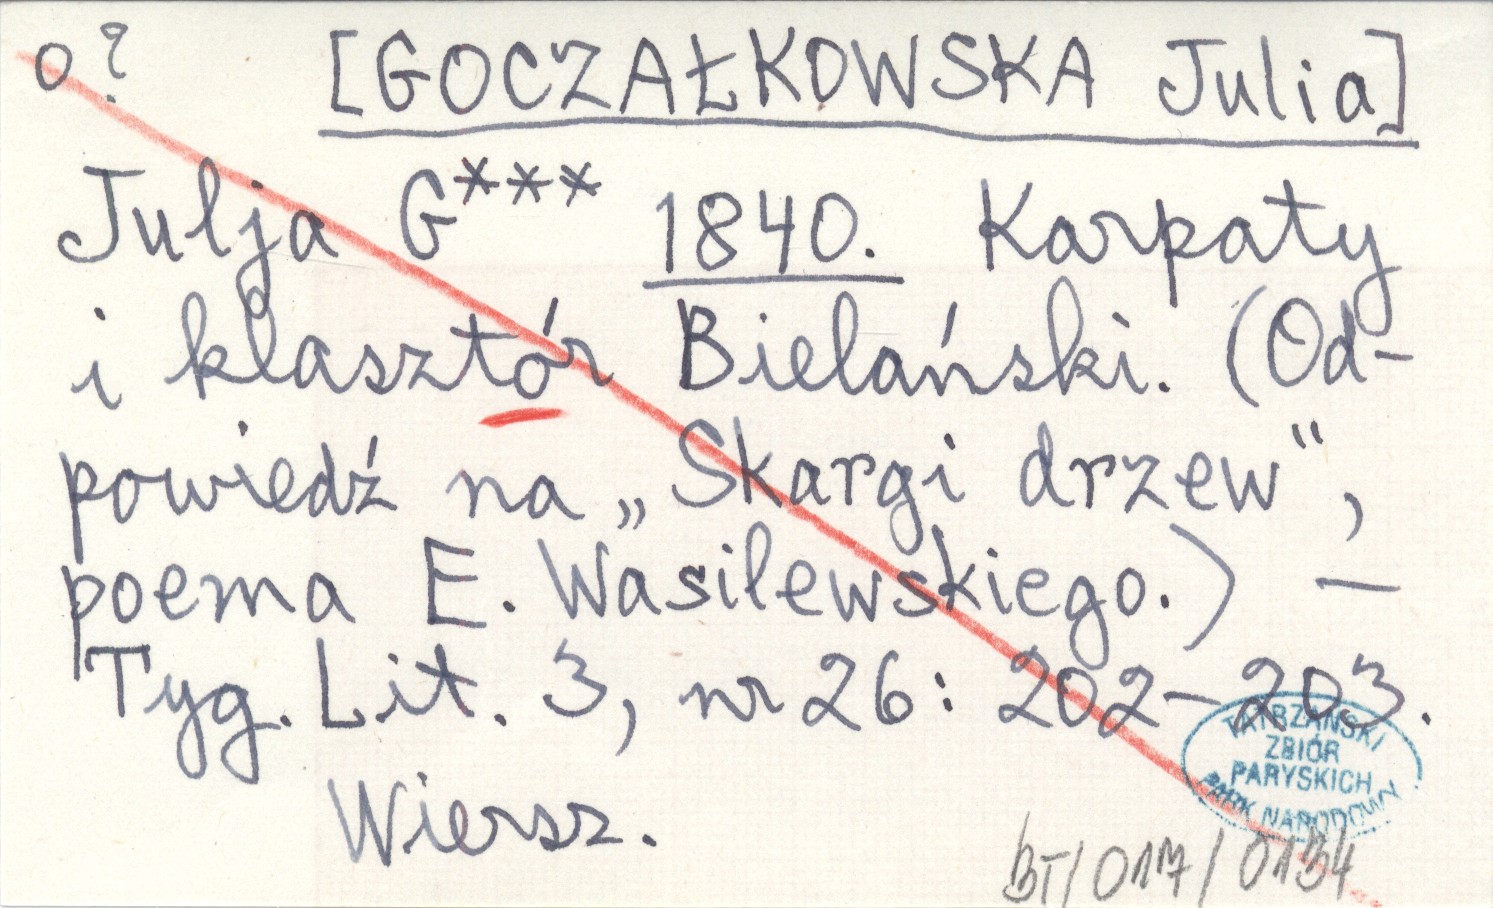 o? [GOCZAŁKOWSKA Julia]
Julja G*** 1840. Karpaty
i klasztór Bielański. (Od-
powiedź na „Skargi drzew“,
poema E. Wasilewskiego.) —
Tyg. Lit. 3, nr 26: 202–203.
Wiersz.
TATRZAŃSKI
ZBIÓR
PARYSKICH
PARK NARODOWY
BT/017/0134